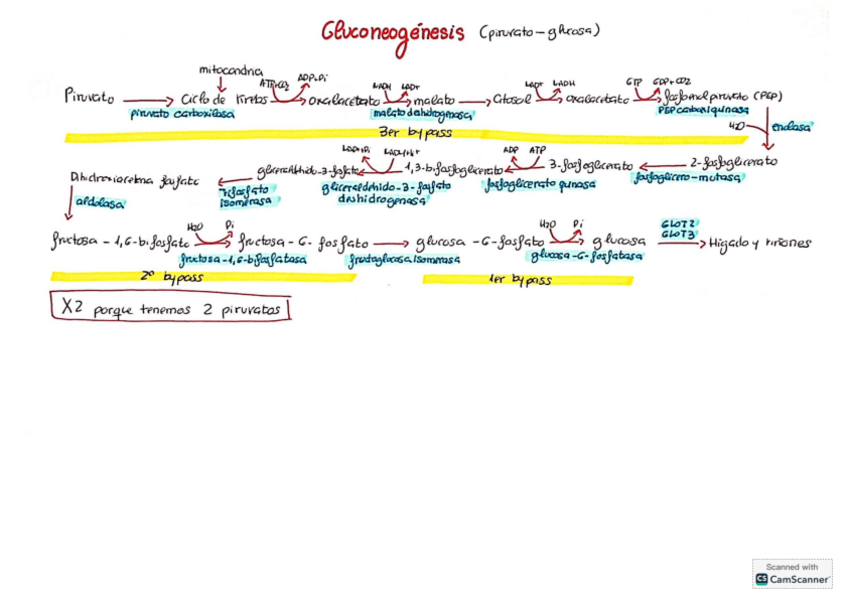 Gluconeogénesis (piruvato - glucosa)
mitocondria
ATP+CO2 ADP+Pi NADH NAD+ NAD+ NADH GTP GDP+CO2
Piruvato → Ciclo de Krebs → oxalacetato → malato → Citosol → oxalacetato → fosfoenolpiruvato (PEP)
piruvato carboxilasa malato deshidrogenasa PEP carboxiquinasa
3er bypass
H2O enolasa
NAD+Pi NADH+H+ ADP ATP
Dihidroxiacetona fosfato ← gliceraldehido-3-fosfato ← 1,3-bifosfoglicerato ← 3-fosfoglicerato ← 2-fosfoglicerato
triosfato isomerasa gliceraldehido-3-fosfato deshidrogenasa fosfoglicerato quinasa fosfoglicero-mutasa
aldolasa
H2O Pi H2O Pi GLUT2 GLUT3
fructosa-1,6-bifosfato → fructosa-6-fosfato → glucosa-6-fosfato → glucosa → Hígado y riñones
fructosa-1,6-bifosfatasa fructoglucosa isomerasa glucosa-6-fosfatasa
2º bypass 1er bypass
X2 porque tenemos 2 piruvatos
Scanned with
CS CamScanner